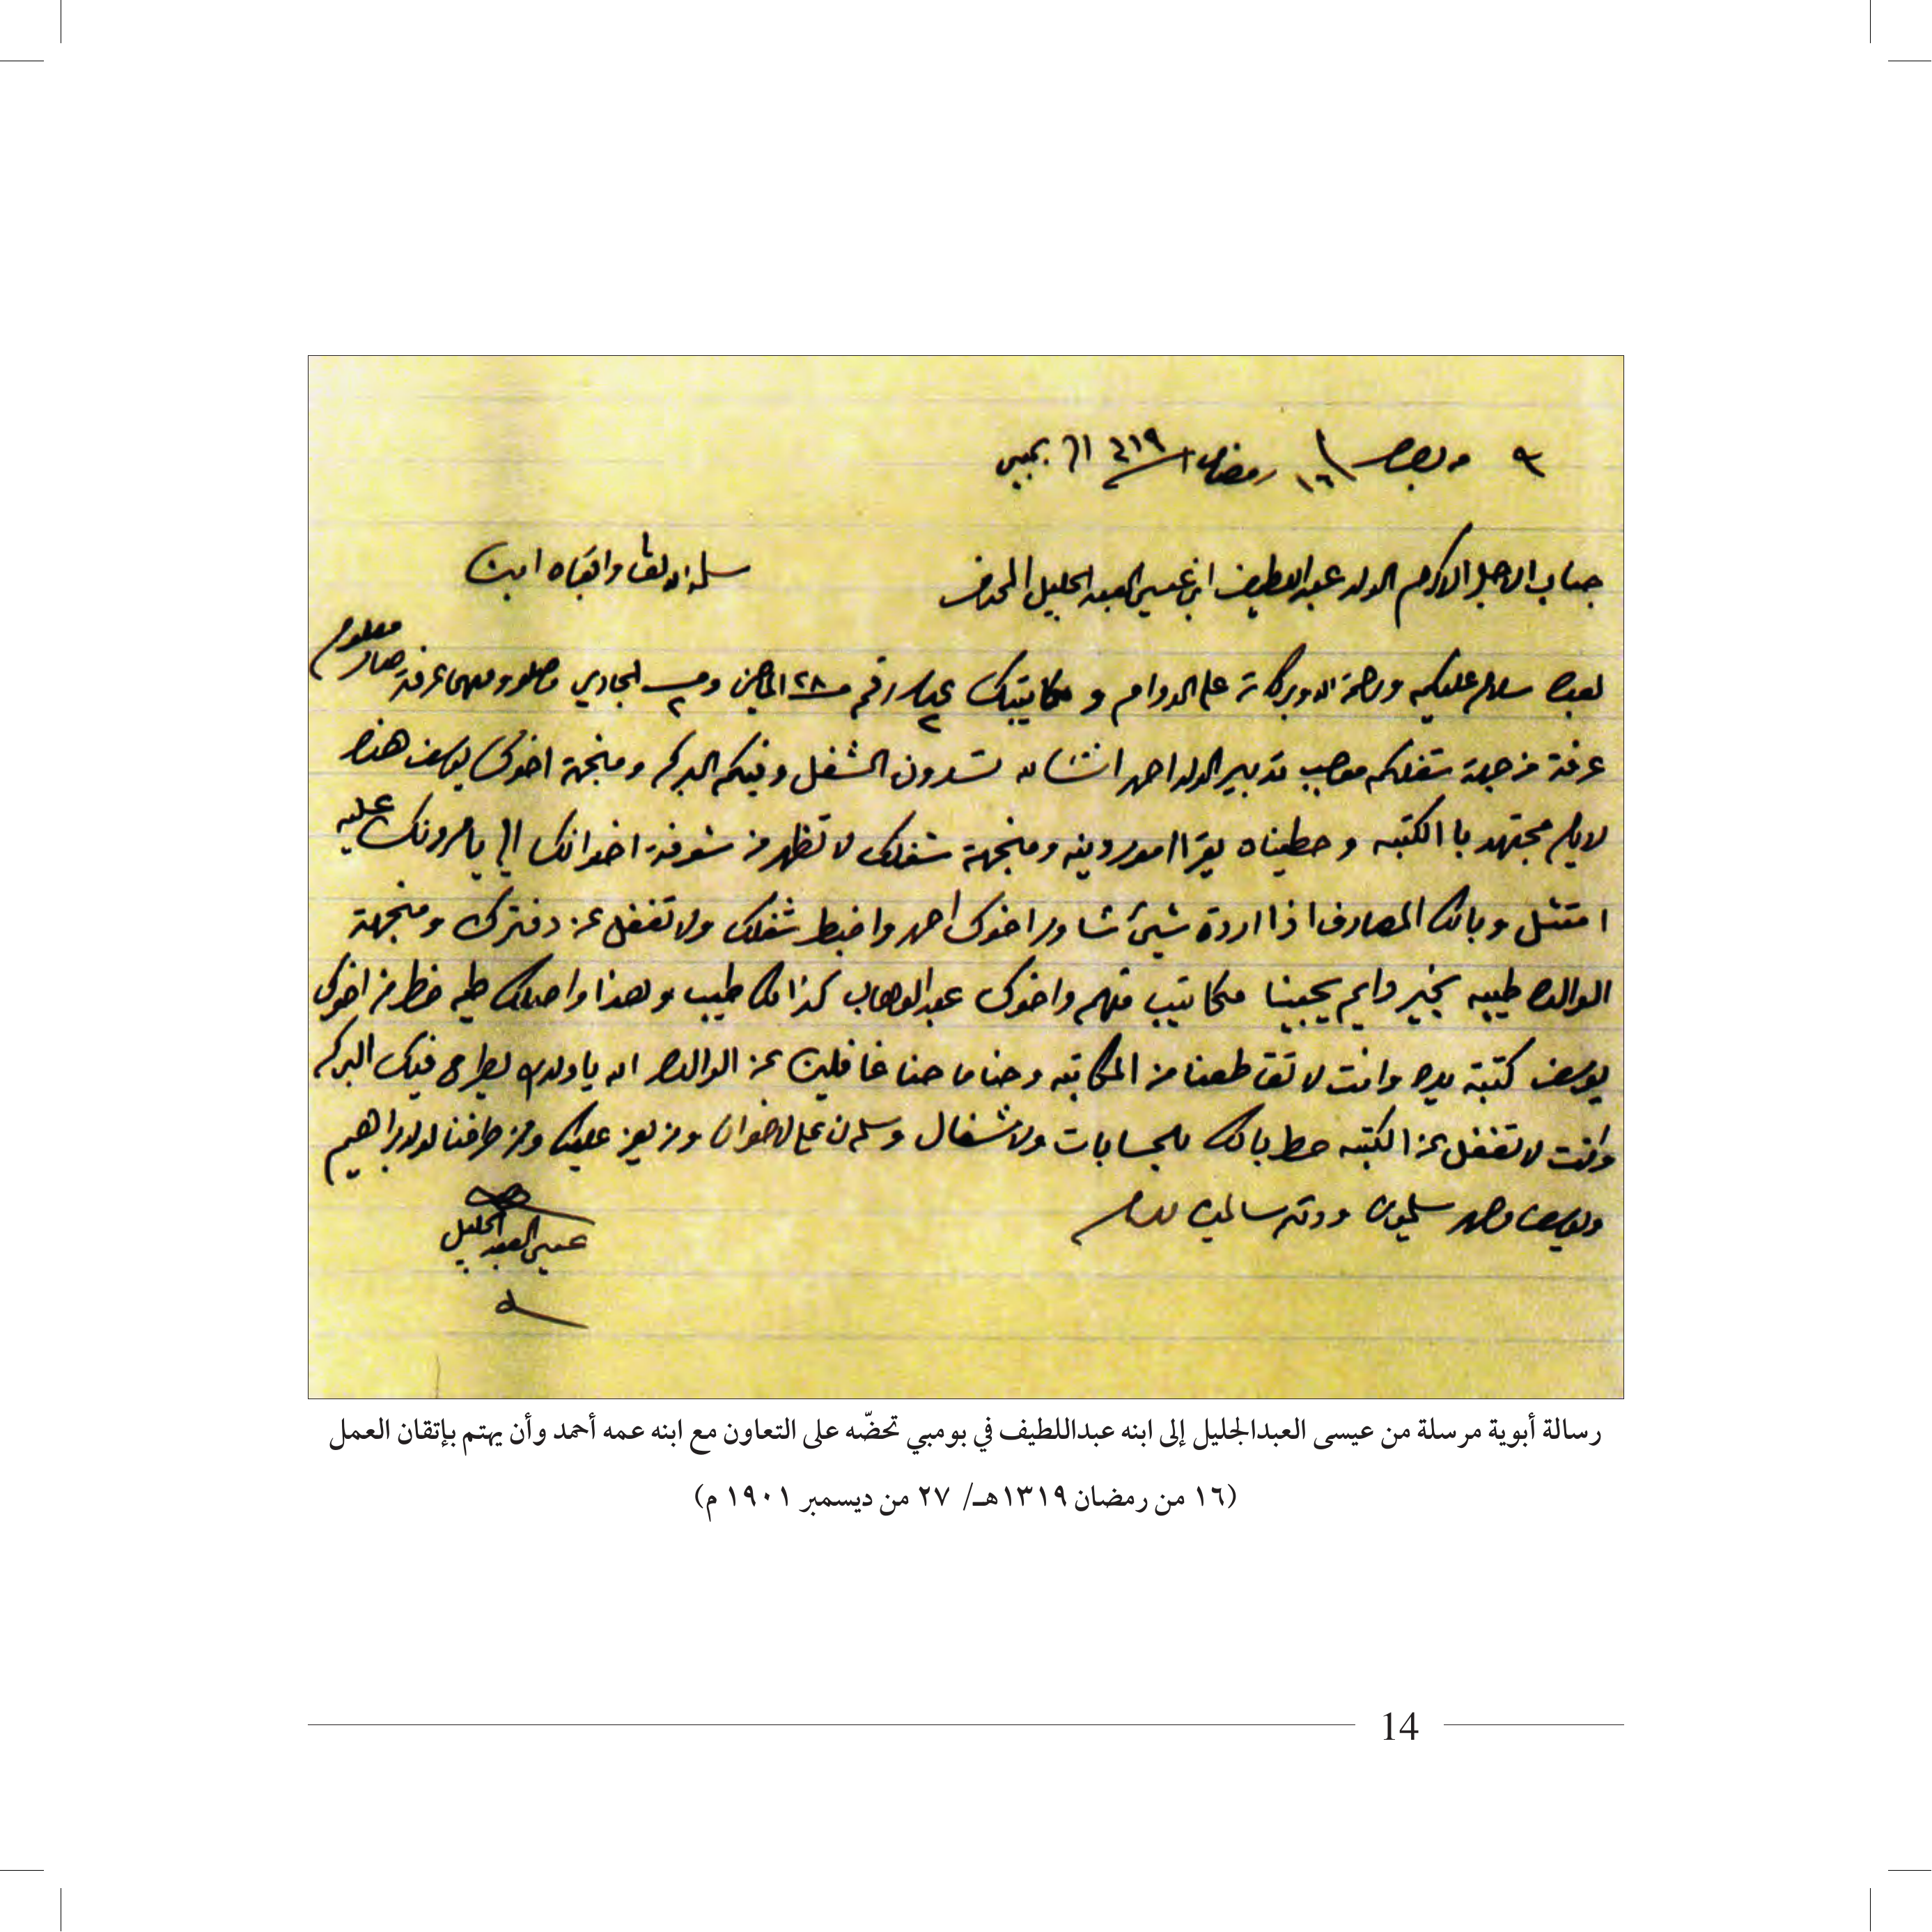 من بصره ١٦ رمضان ٣١٩ الى بمبي
جناب الاجل الاكرم الولد عبداللطيف ابن عيسى العبد الجليل المحترم
سلمه الله تعالى وابقاه امين
بعده سلام عليكم ورحمة الله وبركاته على الدوام و مكاتيبك عدد ٢ رقم ٢٨ الماضي و ٢ الجاري وصلو ومهما عرفة صار معلوم
عرفة من جهة شغلكم موجب تدبير الولد احمد انشا الله تسدون الشغل وفيكم البركه ومنجهة اخوك يوسف هذه
لايام مجتهد با الكتبه وحطيناه يقرا امور دينه ومنجهة شغلك لا تظهر من شوفة اخوانك الي يامرونك عليه
امتثل وبالك المصارف اذا اردة شيئ شاور اخوك احمد واضبط شغلك ولا تغفل عن دفترك ومنجهة
الوالده طيبه بخير دايم يجينا مكاتيب منهم واخوك عبدالوهاب كذالك طيب وهذا واصلك طيه خط من اخوك
يوسف كتبة يده وانت لا تقاطعنا من المكاتبه وحنا ما حنا غافلين عن الوالده الله ياولدي يطرح فيك البركه
وانت لا تغفل عن الكتبه حط بالك للحسابات ولاشغال وسلم لنا على لاخوان ومن يعز عليك ومن طرفنا لولد ابراهيم
ويوسف وحمد يسلمون ودمتم سالمين
عيسى العبد الجليل
رسالة أبوية مرسلة من عيسى العبدالجليل إلى ابنه عبداللطيف في بومبي تحضّه على التعاون مع ابنه عمه أحمد وأن يهتم بإتقان العمل
(١٦ من رمضان ١٣١٩هـ/ ٢٧ من ديسمبر ١٩٠١ م)
14